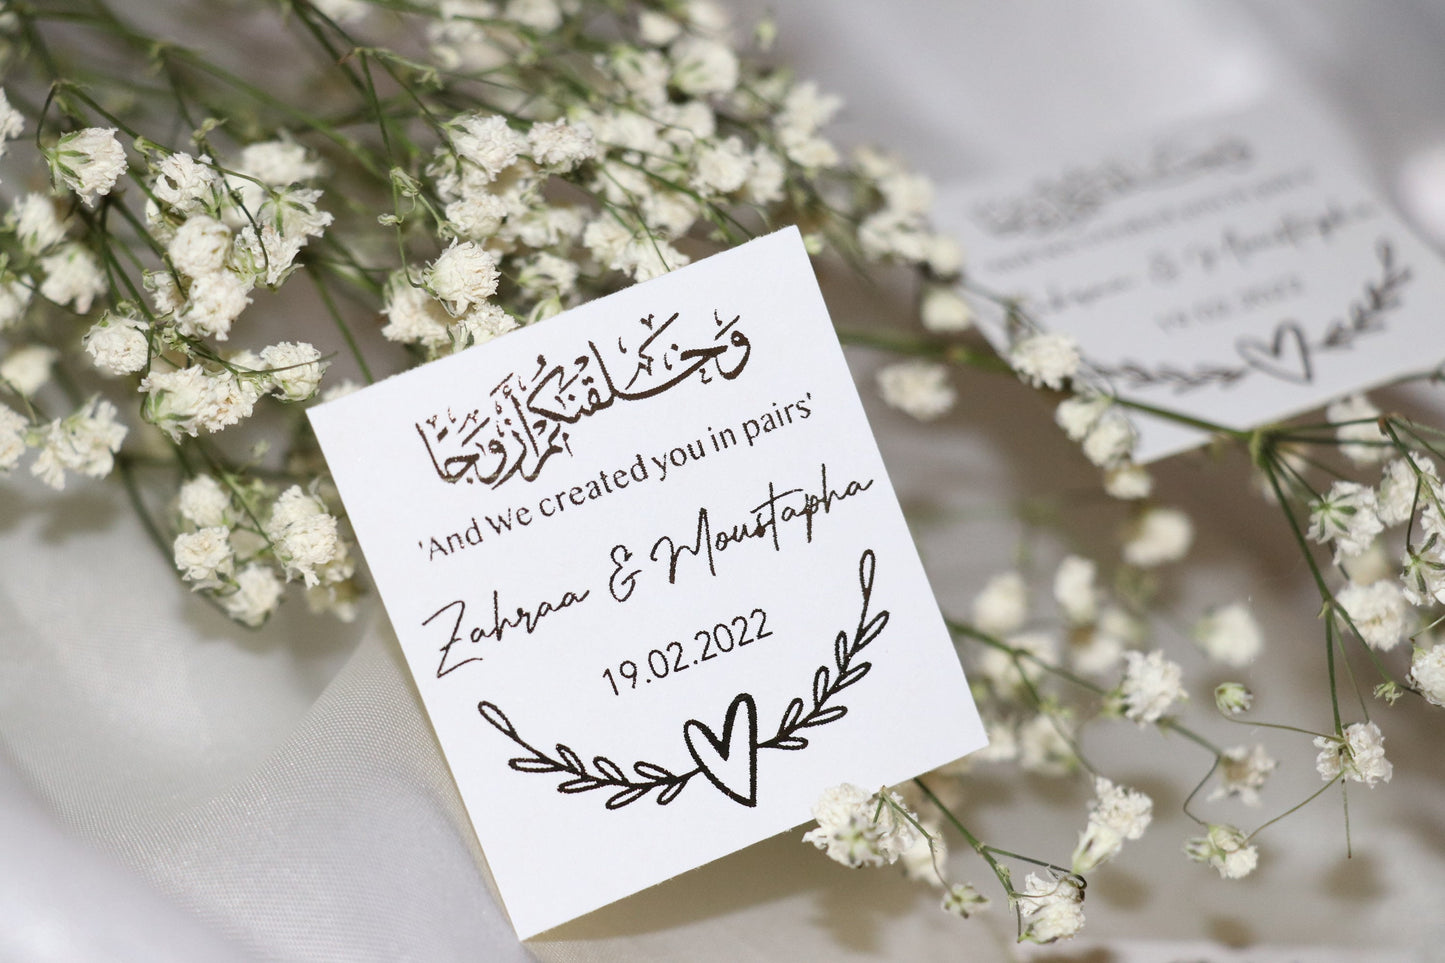 وَخَلَقْنَٰكُمْ أَزْوَٰجًا
'And We created you in pairs'
Zahraa & Moustapha
19.02.2022
& Moustapha